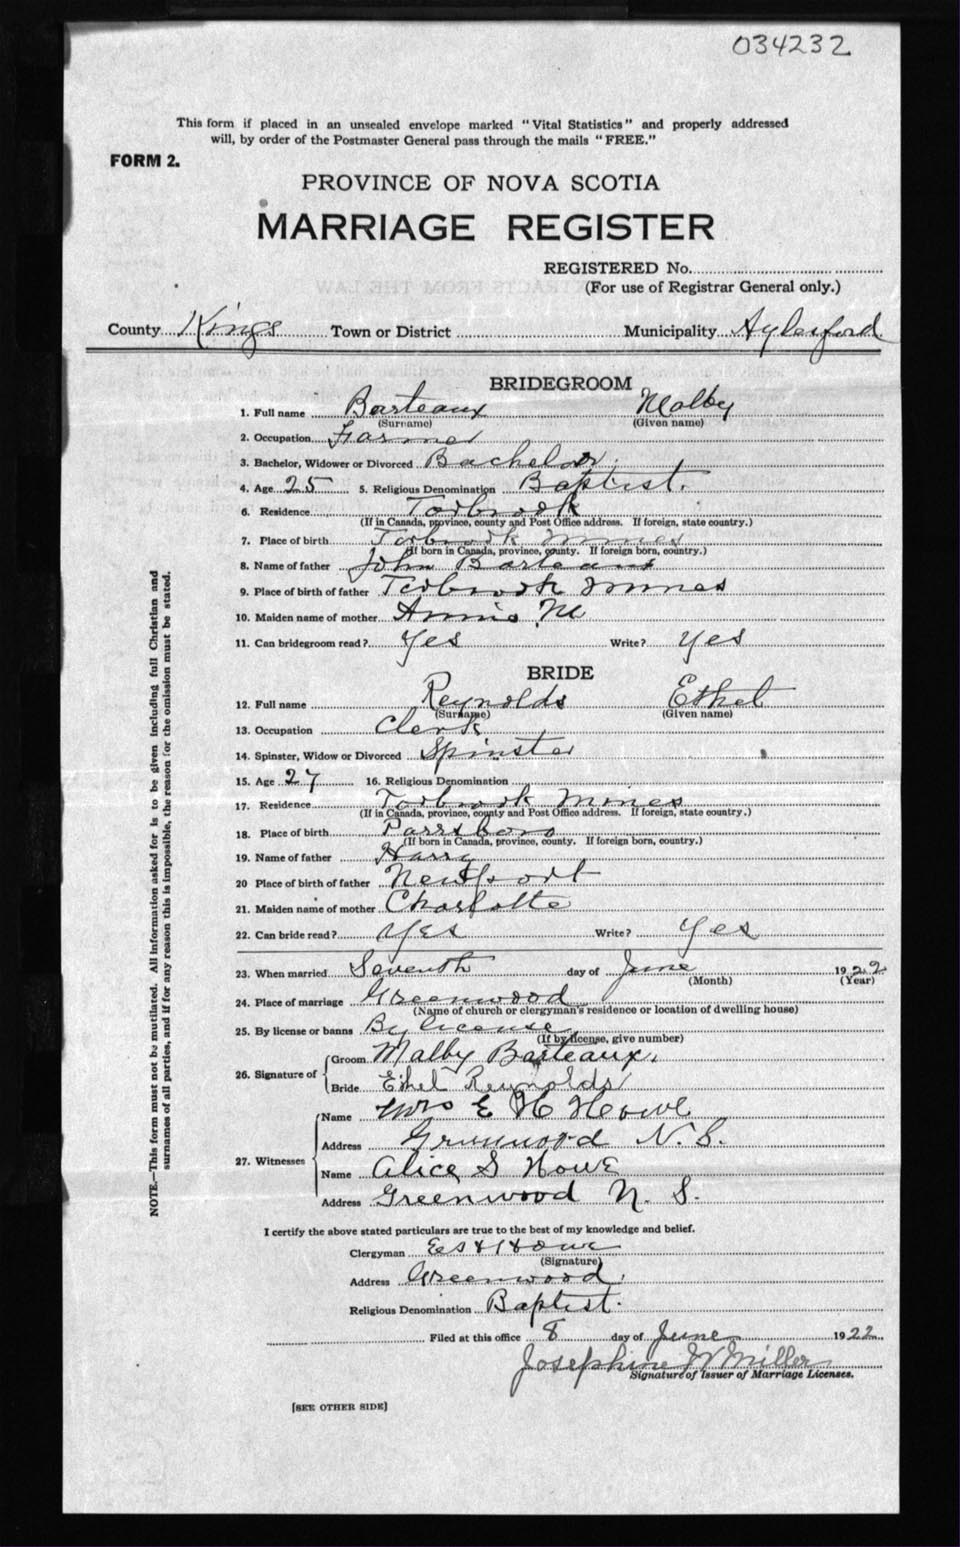 034232
This form if placed in an unsealed envelope marked "Vital Statistics" and properly addressed
will, by order of the Postmaster General pass through the mails "FREE."
FORM 2.
PROVINCE OF NOVA SCOTIA
MARRIAGE REGISTER
REGISTERED No.
(For use of Registrar General only.)
County Kings Town or District Municipality Aylesford
BRIDEGROOM
1. Full name Barteaux Malby
(Surname) (Given name)
2. Occupation Farmer
3. Bachelor, Widower or Divorced Bachelor
4. Age 25 5. Religious Denomination Baptist.
6. Residence Torbrook
(If in Canada, province, county and Post Office address. If foreign, state country.)
7. Place of birth Torbrook Mines
(If born in Canada, province, county. If foreign born, country.)
8. Name of father John Barteaux
9. Place of birth of father Torbrook Mines
10. Maiden name of mother Annie M
11. Can bridegroom read? Yes Write? Yes
BRIDE
12. Full name Reynolds Ethel
(Surname) (Given name)
13. Occupation Clerk
14. Spinster, Widow or Divorced Spinster
15. Age 27 16. Religious Denomination
17. Residence Torbrook Mines
(If in Canada, province, county and Post Office address. If foreign, state country.)
18. Place of birth Parrsboro
(If born in Canada, province, county. If foreign born, country.)
19. Name of father Harry
20 Place of birth of father Newport
21. Maiden name of mother Charlotte
22. Can bride read? Yes Write? Yes
23. When married Seventh day of June 1922
(Month) (Year)
24. Place of marriage Greenwood
(Name of church or clergyman's residence or location of dwelling house)
25. By license or banns By license
(If by license, give number)
26. Signature of Groom Malby Barteaux.
Bride Ethel Reynolds
27. Witnesses Name Mrs E H Howe
Address Greenwood N.S.
Name Alice S Howe
Address Greenwood N. S.
NOTE.—This form must not be mutilated. All information asked for is to be given including full Christian and
surnames of all parties, and if for any reason this is impossible, the reason for the omission must be stated.
I certify the above stated particulars are true to the best of my knowledge and belief.
Clergyman H Howe
(Signature)
Address Greenwood
Religious Denomination Baptist.
Filed at this office 8 day of June 1922
Josephine W Miller
Signature of Issuer of Marriage Licenses.
[SEE OTHER SIDE]